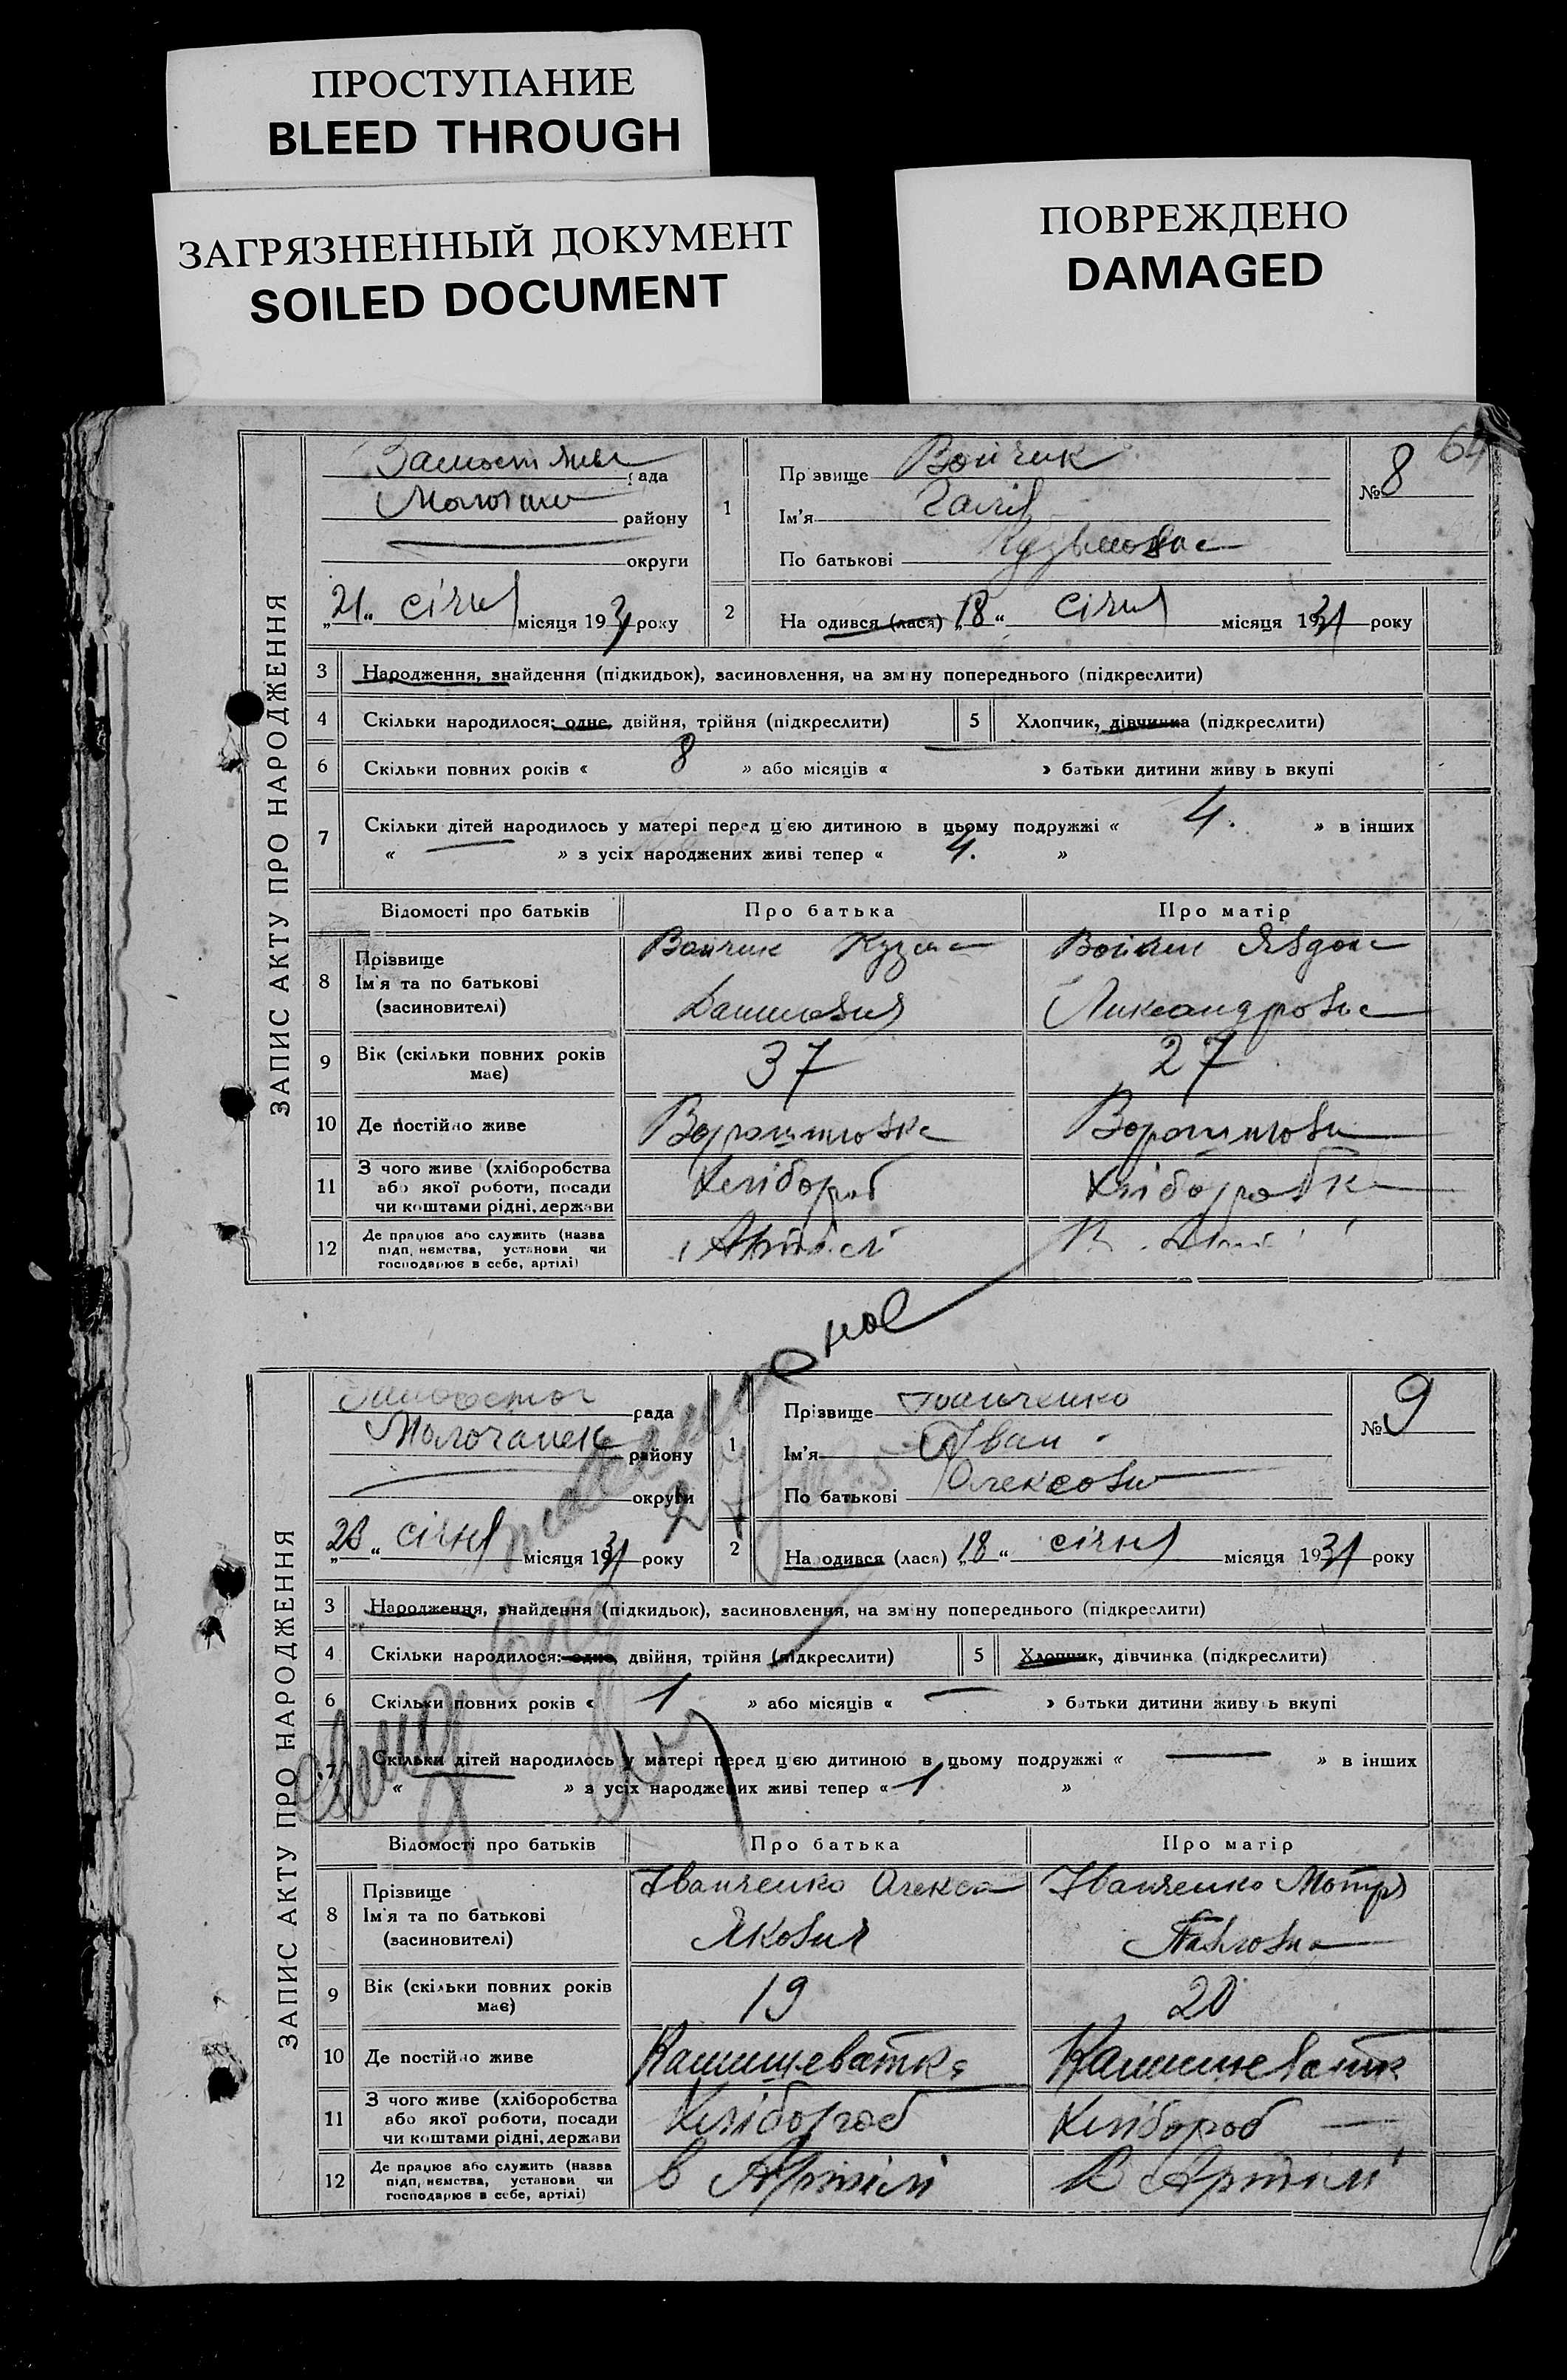 ПРОСТУПАНИЕ
BLEED THROUGH
ЗАГРЯЗНЕННЫЙ ДОКУМЕНТ
SOILED DOCUMENT
ПОВРЕЖДЕНО
DAMAGED
64
ЗАПИС АКТУ ПРО НАРОДЖЕННЯ
рада
району
округи
„21“ січня місяця 1931 року
1
Прізвище Войчик
Ім'я Галя
По батькові Кузьмовна
№ 8
2 На одився (лася) „18“ січня місяця 1931 року
3 Народження, знайдення (підкидьок), засиновлення, на зміну попереднього (підкреслити)
4 Скільки народилося: одне, двійня, трійня (підкреслити) 5 Хлопчик, дівчинка (підкреслити)
6 Скільки повних років « 8 » або місяців « » батьки дитини живу ь вкупі
7 Скільки дітей народилось у матері перед цією дитиною в цьому подружжі « 4. » в інших
« — » з усіх народжених живі тепер « 4. »
Відомості про батьків Про батька Про матір
8 Прізвище Ім'я та по батькові (засиновителі) Войчик Кузма Войчик Явдоха
Александровна
9 Вік (скільки повних років має) 37 27
10 Де постійно живе
11 З чого живе (хліборобства або якої роботи, посади чи коштами рідні, держави Хлібороб Хліборобка
12 Де працює або служить (назва підп, ємства, установи чи господарює в себе, артілі) Артілі
ЗАПИС АКТУ ПРО НАРОДЖЕННЯ
рада
Молочанск району
округи
„28“ січня місяця 1931 року
1
Прізвище Іванченко
Ім'я Іван
По батькові Олексови
№ 9
2 На одився (лася) „18“ січня місяця 1931 року
3 Народження, знайдення (підкидьок), засиновлення, на зміну попереднього (підкреслити)
4 Скільки народилося: одне, двійня, трійня (підкреслити) 5 Хлопчик, дівчинка (підкреслити)
6 Скільки повних років « 1 » або місяців « — » батьки дитини живу ь вкупі
7 Скільки дітей народилось у матері перед цією дитиною в цьому подружжі « — » в інших
« — » з усіх народжених живі тепер « 1 »
Відомості про батьків Про батька Про матір
8 Прізвище Ім'я та по батькові (засиновителі) Іванченко Олекса Іванченко Мотря
Якович Павловна
9 Вік (скільки повних років має) 19 20
10 Де постійно живе
11 З чого живе (хліборобства або якої роботи, посади чи коштами рідні, держави Хлібороб Хлібороб
12 Де працює або служить (назва підп, ємства, установи чи господарює в себе, артілі) в Артілі в Артілі